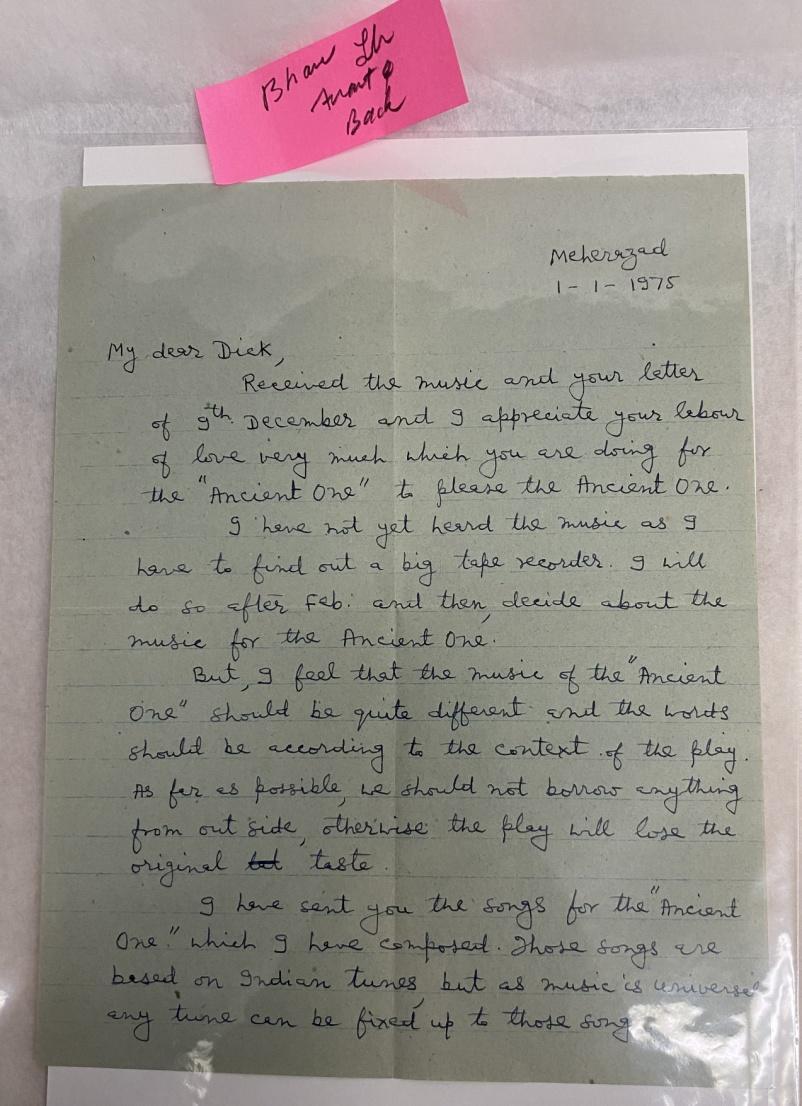 Bhau Ltr
Front &
Back
Meherazad
1-1-1975
My dear Dick,
Received the music and your letter
of 9th. December and I appreciate your labour
of love very much which you are doing for
the "Ancient One" to please the Ancient One.
I have not yet heard the music as I
have to find out a big tape recorder. I will
do so after Feb. and then, decide about the
music for the Ancient One.
But, I feel that the music of the "Ancient
One" should be quite different and the words
should be according to the context of the play.
As far as possible, we should not borrow anything
from out side, otherwise the play will lose the
original taste.
I have sent you the songs for the "Ancient
One." which I have composed. Those songs are
based on Indian tunes, but as music is universal
any tune can be fixed up to those song